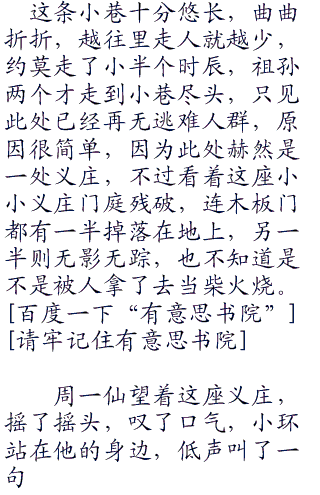 这条小巷十分悠长，曲曲
折折，越往里走人就越少，
约莫走了小半个时辰，祖孙
两个才走到小巷尽头，只见
此处已经再无逃难人群，原
因很简单，因为此处赫然是
一处义庄，不过看着这座小
小义庄门庭残破，连木板门
都有一半掉落在地上，另一
半则无影无踪，也不知道是
不是被人拿了去当柴火烧。
[百度一下“有意思书院”]
[请牢记住有意思书院]
周一仙望着这座义庄，
摇了摇头，叹了口气，小环
站在他的身边，低声叫了一
句